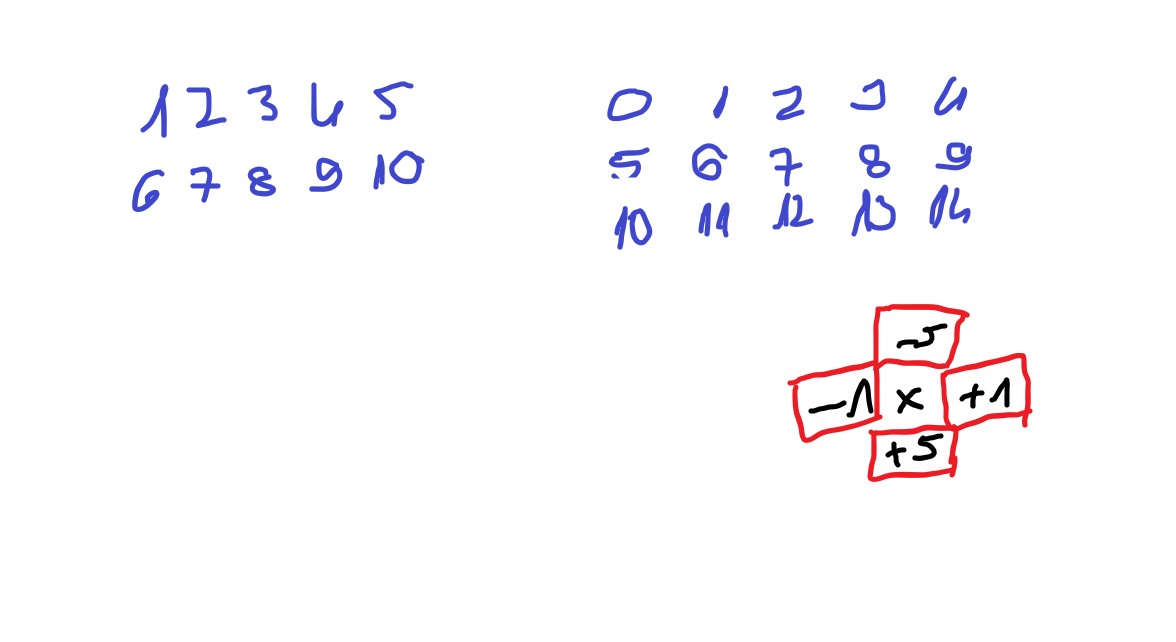 1 2 3 4 5
6 7 8 9 10
0 1 2 3 4
5 6 7 8 9
10 11 12 13 14
-5
-1 x +1
+5